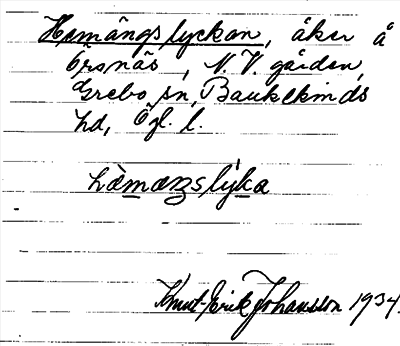 Hemängslyckan, åker å
Örsnäs, N. V. gården,
Grebo sn, Bankekinds
hd, Ögl. l.
Knut-Erik Johansson 1934.